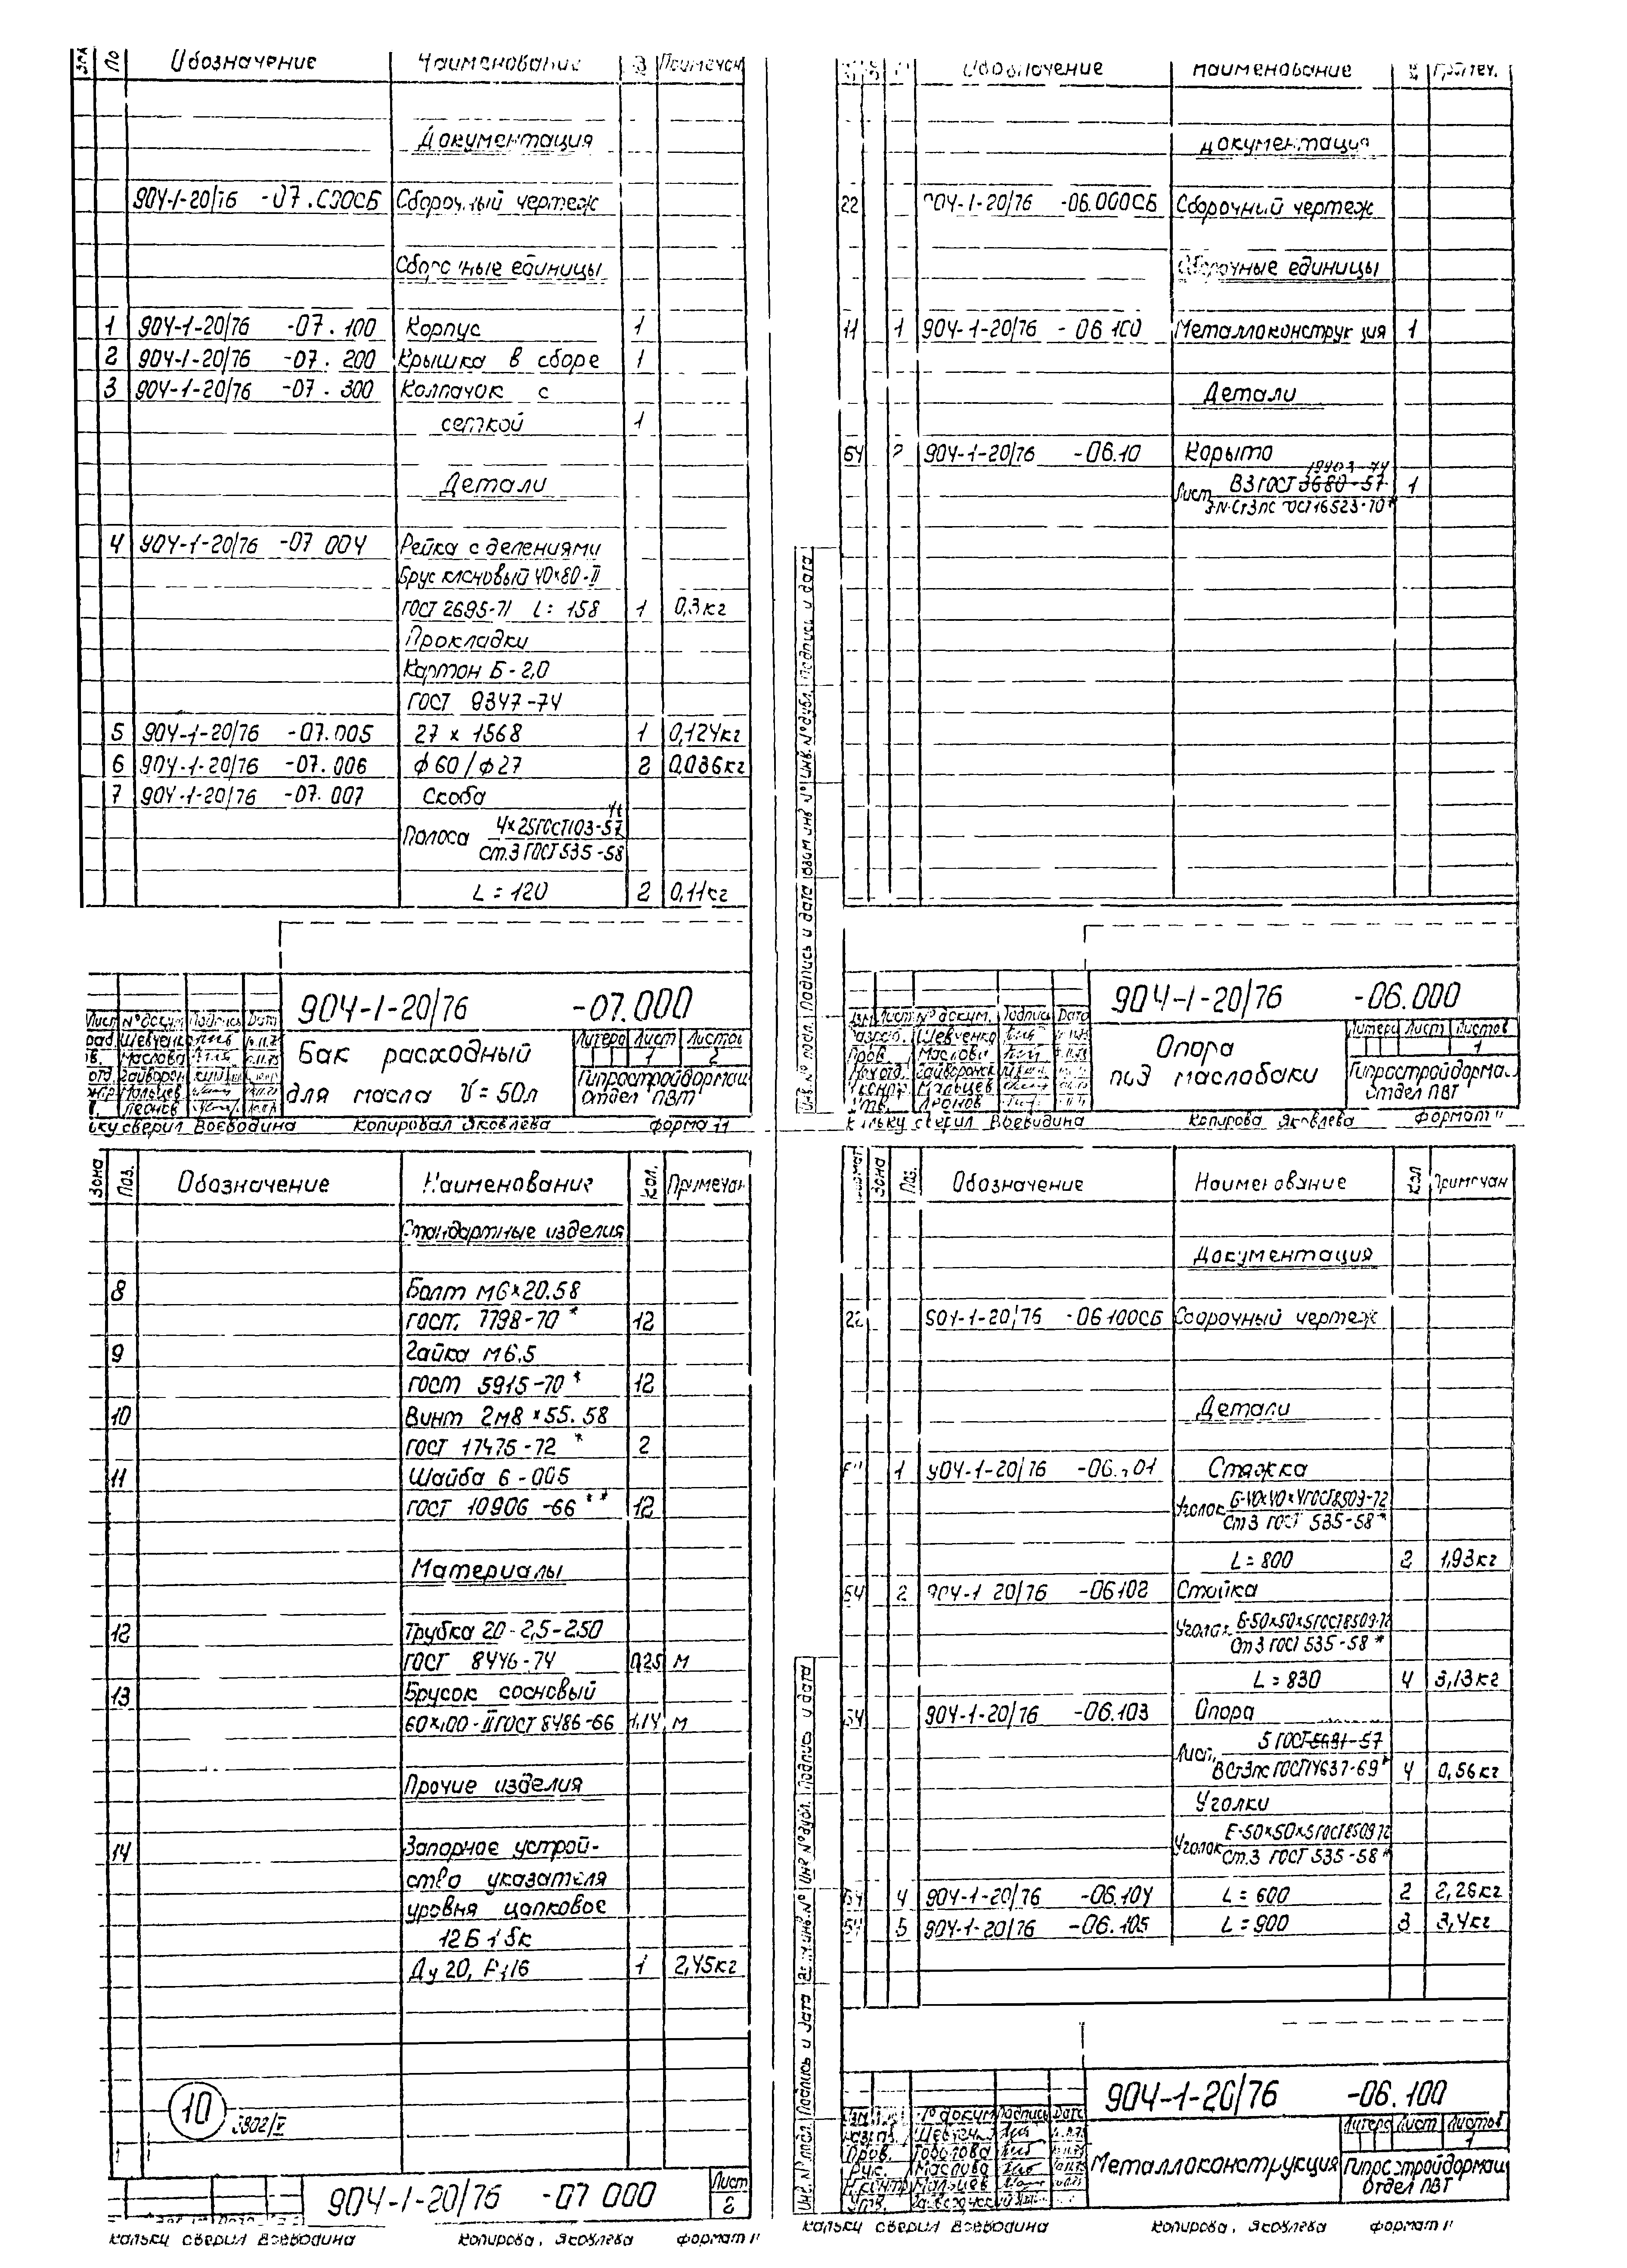 Обозначение Наименование Примечан
Документация
904-1-20/76 -07.000СБ Сборочный чертеж
Сборочные единицы
1 904-1-20/76 -07.100 Корпус 1
2 904-1-20/76 -07.200 Крышка в сборе 1
3 904-1-20/76 -07.300 Колпачок с
сеткой 1
Детали
4 904-1-20/76 -07 004 Рейка с делениями
Брус кленовый 40×80-II
ГОСТ 2695-71 L= 158 1 0,3кг
Прокладки
Картон Б-2,0
ГОСТ 9347-74
5 904-1-20/76 -07.005 27 х 1568 1 0,124кг
6 904-1-20/76 -07.006 ф60/ф27 2 0,036кг
7 904-1-20/76 -07.007 Скоба
Полоса 4×25ГОСТ103-57
Ст.3 ГОСТ535-58
L = 120 2 0,11кг
904-1-20/76 -07.000
Лист № докум. Подпись Дата
Шевченко
Маслова
Гайворон
Мальцев
Леонов
Бак расходный
для масла V=50л
Литера Лист Листов
1 2
Гипростройдормаш
Отдел ПВТ
кальку сверил Воеводина Копировал Яковлева Формат 11
Обозначение Наименование Примеч.
Документация
22 904-1-20/76 -06.000СБ Сборочный чертеж
Сборочные единицы
11 1 904-1-20/76 -06 100 Металлоконструкция 1
Детали
2 904-1-20/76 -06.10 Корыто
19903-74
Лист В3 ГОСТ 3680-57 1
3-IV-Ст3пс ГОСТ16523-70*
Инв. № подл. Подпись и дата Взам инв № Инв. № дубл. Подпись и дата
904-1-20/76 -06.000
Лист № докум. Подпись Дата
Шевченко
Пров. Маслова
Нач отд. Гайворонск
Н.контр. Мальцев
Утв. Леонов
Опора
под маслобаки
Литера Лист Листов
1
Гипростройдормаш
Отдел ПВТ
кальку сверил Воеводина Копирова Яковлева Формат 11
Зона Поз. Обозначение Наименование Кол. Примечан
Стандартные изделия
8 Болт М6×20.58
ГОСТ. 7798-70 * 12
9 Гайка М6.5
ГОСТ 5915-70 * 12
10 Винт 2М8 ×55.58
ГОСТ 17475-72 * 2
11 Шайба 6 - 005
ГОСТ 10906 -66 ** 12
Материалы
12 Трубка 20-2,5-250
ГОСТ 8446-74 0,25 м
13 Брусок сосновый
60×100-II ГОСТ 8486-66 1.14 м
Прочие изделия
14 Запорное устрой-
ство указателя
уровня цапковое
12Б 1 бк
Ду 20, Ру16 1 2,45кг
10
904-1-20/76 -07 000
Лист
2
кальку сверил Воеводина Копирова, Яковлева формат 11
Формат Зона Поз. Обозначение Наименование Кол Примечан
Документация
22 904-1-20/76 -06 100СБ Сборочный чертеж
Детали
1 904-1-20/76 -06.101 Стяжка
Уголок Б-40×40×4ГОСТ8509-72
Ст3 ГОСТ 535-58*
L = 800 2 1,93кг
2 904-1 20/76 -06102 Стойка
Уголок Б-50×50×5ГОСТ8509-72
Ст 3 ГОСТ 535-58 *
L = 830 4 3,13кг
904-1-20/76 -06.103 Опора
Лист 5 ГОСТ 5681-57
ВСт3пс ГОСТ14637-69* 4 0,56кг
Уголки
Уголок Б-50×50×5ГОСТ8509 72
Ст.3 ГОСТ 535-58*
4 904-1-20/76 -06.104 L = 600 2 2,26кг
5 904-1-20/76 -06.105 L = 900 3 3,4кг
Инв. № подл. Подпись и дата Взам. инв. № Инв № дубл. Подпись и дата
904-1-20/76 -06.100
№ докум Подпись Дата
Шевчен
Пров.
Рук. Маслова
Н.контр Мальцев
Утв.
Металлоконструкция
Литера Лист Листов
1
Гипростройдормаш
Отдел ПВТ
кальку сверил Воеводина Копирова, Яковлева формат 11